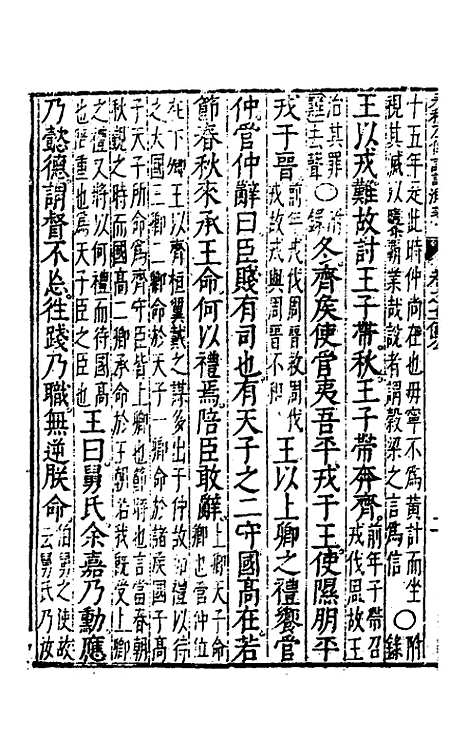 十五年走此時仲尚在也毋寧不為黃計而坐○附
視其滅以隳霸業哉說者謂穀梁之言為信 錄
王以戎難故討王子帶秋王子帶奔齊前年子帶召戎伐周故王
治其罪○治難去聲○錄冬齊矦使管夷吾平戎于王使隰朋平
戎于晉前年戎伐周晉救周伐戎故戎與周晉不和王以上卿之禮饗管
仲管仲辭曰臣賤有司也有天子之二守國高在若
節春秋來承王命何以禮焉陪臣敢辭上卿天子命卿也管仲位
在下卿王以齊桓翼戴之謀多出于仲故加禮以待
之大國三卿二卿命於天子一卿命於諸矦國子高
子天子所命為齊守臣皆上卿也節時也言當春朝
秋覲之時而國高二卿承命於王朝沿我旣受上卿
之禮又將何禮而待國高也陪重也為天子臣之臣也王曰舅氏余嘉乃勳應
乃懿德謂督不忘往踐乃職無逆朕命伯舅之使故云舅氏乃汝